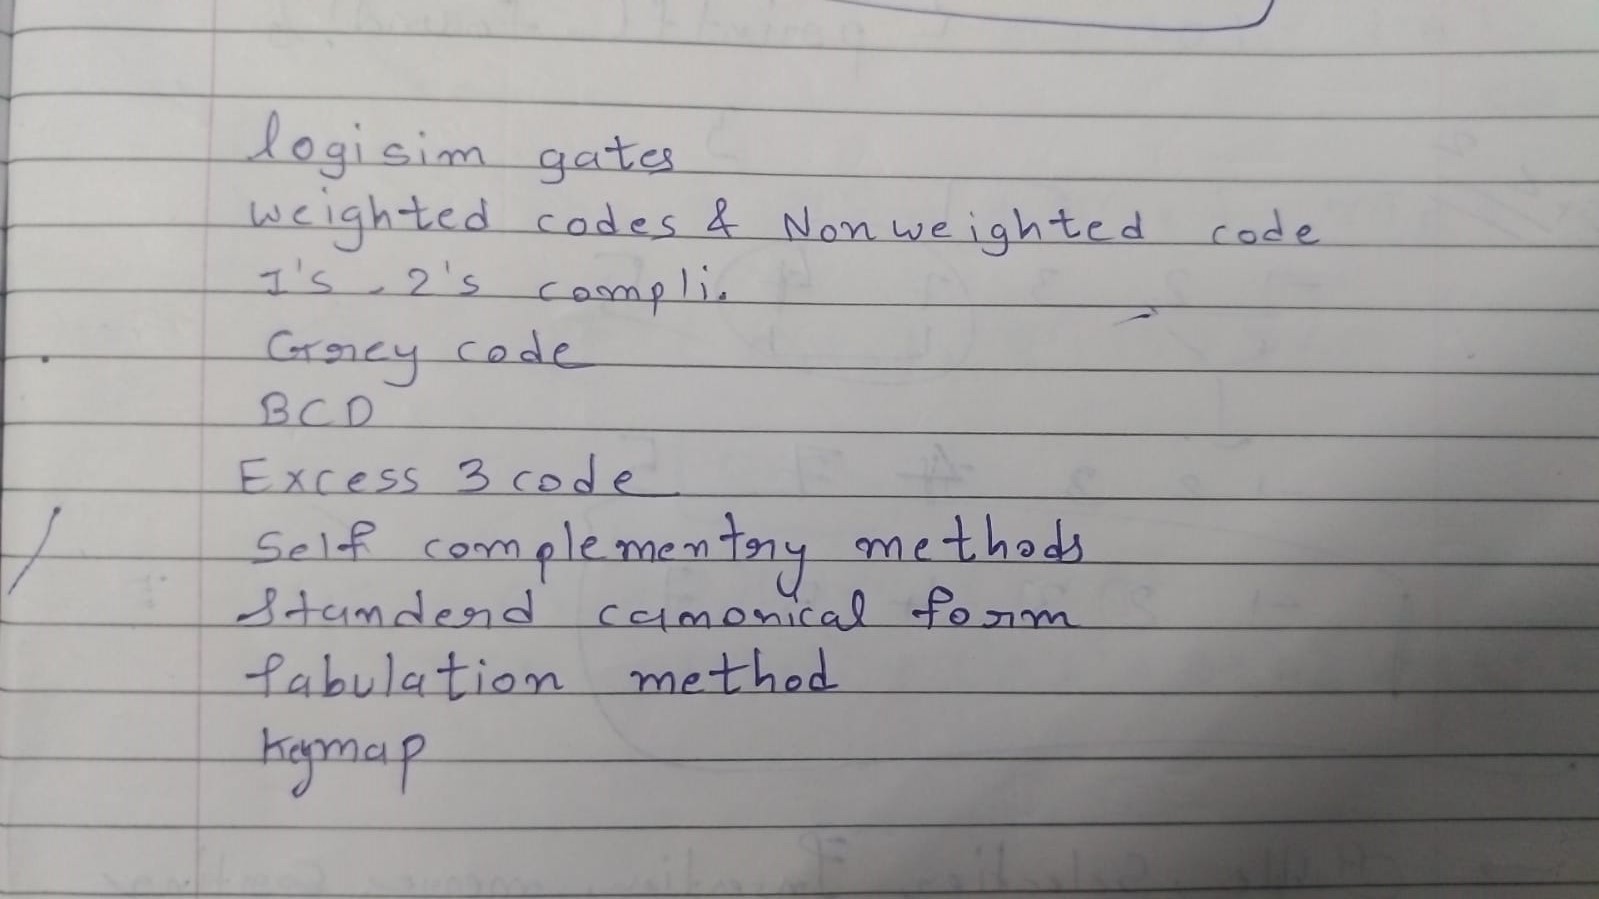 logisim gates
weighted codes & Nonweighted code
1's, 2's compli.
Grey code
BCD
Excess 3 code
Self complementry methods
Standerd canonical form
tabulation method
Keymap